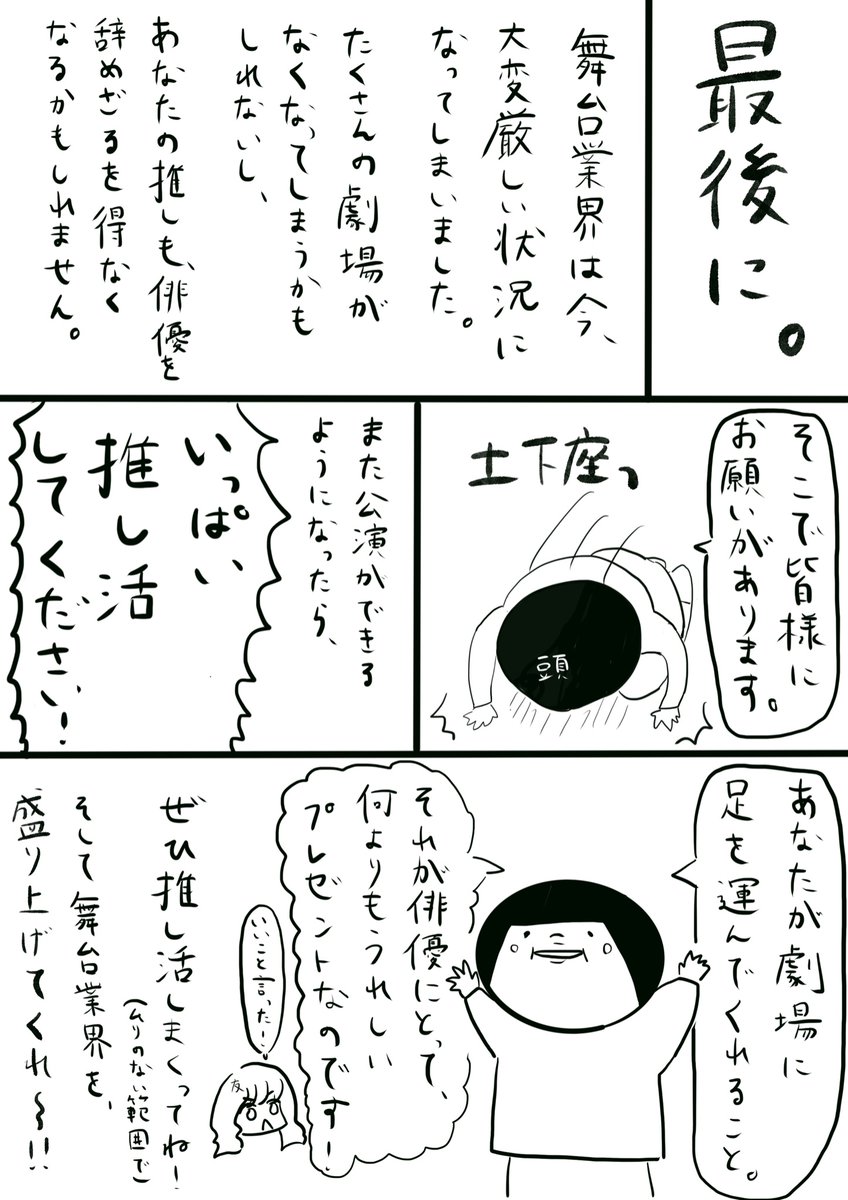 最後に。
舞台業界は今、
大変厳しい状況に
なってしまいました。
たくさんの劇場が
なくなってしまうかも
しれないし、
あなたの推しも、俳優を
辞めざるを得なく
なるかもしれません。
そこで皆様に
お願いがあります。
土下座っ
頭
また公演ができる
ようになったら、
いっぱい
推し活
してください!
あなたが劇場に
足を運んでくれること。
それが俳優にとって、
何よりもうれしい
プレゼントなのです!
いいこと言った!
友
ぜひ推し活しまくってね!
(ムリのない範囲で)
そして舞台業界を、
盛り上げてくれ〜!!